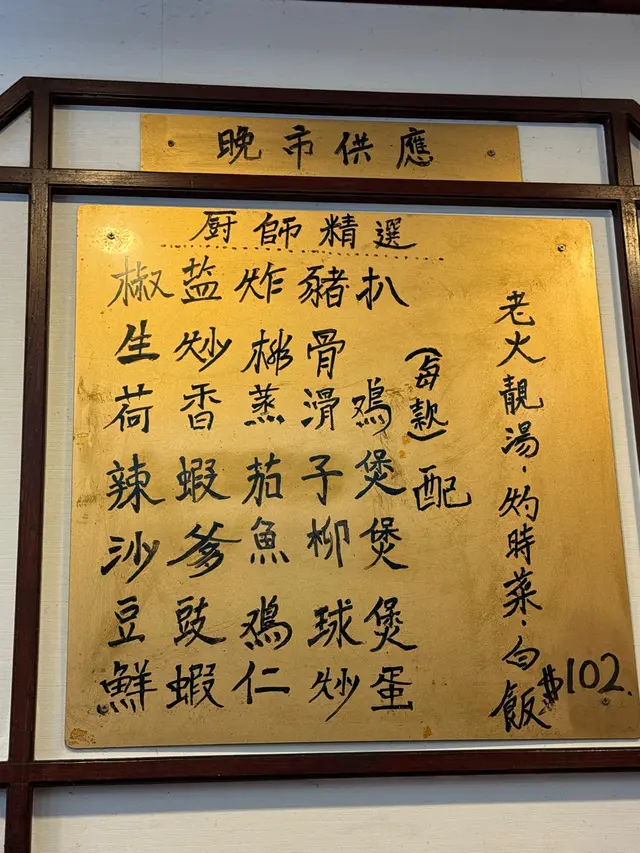 晚市供應
厨師精選
椒盐炸豬扒
生炒排骨
荷香蒸滑鸡
辣蝦茄子煲
沙爹魚柳煲
豆豉鸡球煲
鮮蝦仁炒蛋
(每款)配
老火靚湯、灼時菜、白飯
$102.